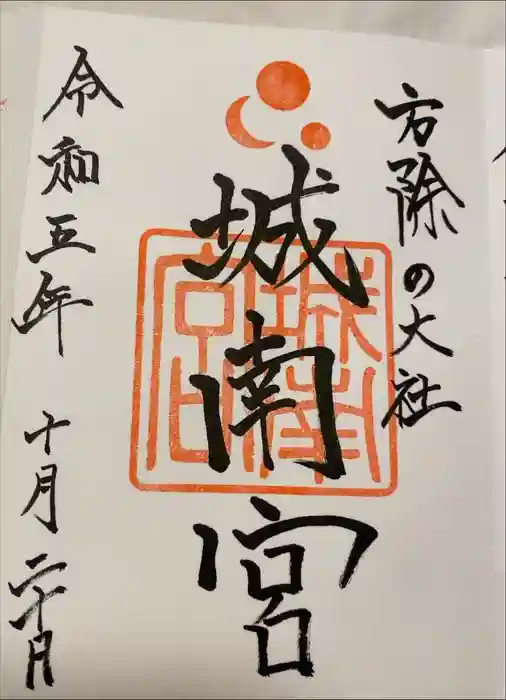 方除の大社
城南宮
城南
宮
令和五年 十月二十日